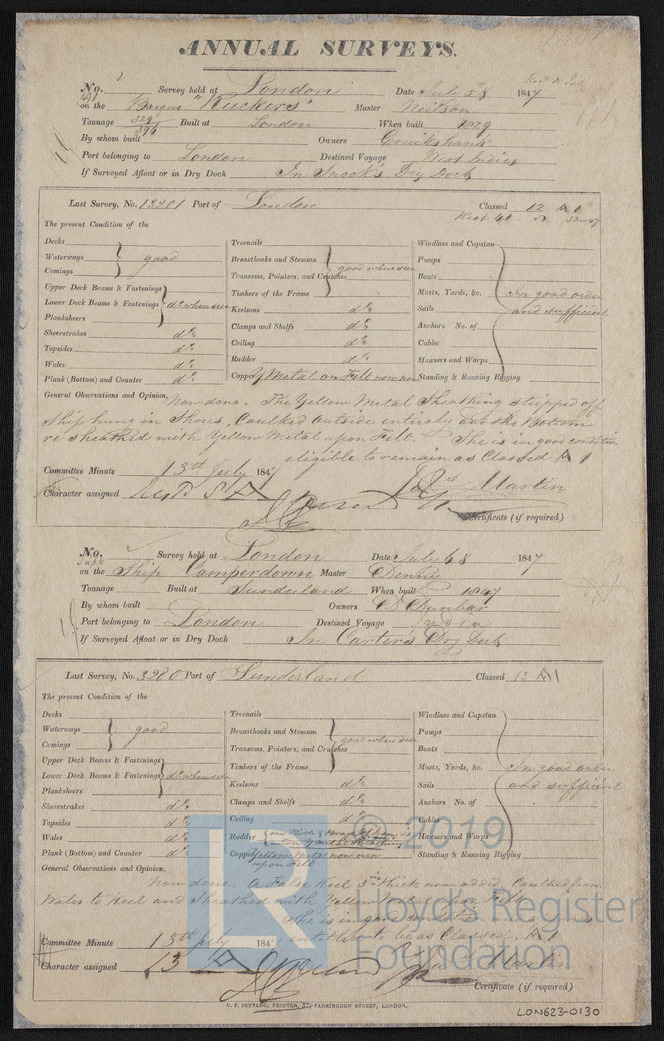 ANNUAL SURVEYS.
No. Survey held at London Date July 1847
on the Barque "Ruckers" Master
Tonnage 329 / 396 Built at London When built 1829
By whom built Owners Cruikshank
Port belonging to London Destined Voyage West Indies
If Surveyed Afloat or in Dry Dock In Snook's Dry Dock
Last Survey, No. 13301 Port of London Classed 12 A 1
The present Condition of the
Decks
Waterways good
Comings
Upper Deck Beams & Fastenings
Lower Deck Beams & Fastenings do when seen
Planksheers
Sheerstrakes do
Topsides do
Wales do
Plank (Bottom) and Counter do
Treenails
Breasthooks and Stemson good where seen
Transoms, Pointers, and Crutches
Timbers of the Frame
Keelsons do
Clamps and Shelfs do
Ceiling do
Rudder do
Copper Y Metal on Felt now new
Windlass and Capstan
Pumps
Boats
Masts, Yards, &c. In good order
Sails and sufficient
Anchors No. of
Cables
Hawsers and Warps
Standing & Running Rigging
General Observations and Opinion, Now done. The Yellow Metal Sheathing stripped off
Ship hung in Shores, Caulked outside entirely and the Bottom
re sheathed with Yellow Metal upon Felt. She is in good condition
eligible to remain as Classed A 1
Committee Minute 13th July 1847
Character assigned
Martin
Certificate (if required)
No. Survey held at London Date July 1847
on the Ship Camperdown Master
Tonnage Built at Sunderland When built 1847
By whom built Owners D Dunbar
Port belonging to London Destined Voyage
If Surveyed Afloat or in Dry Dock In Carter's Dry Dock
Last Survey, No. 3280 Port of Sunderland Classed 13 A 1
The present Condition of the
Decks
Waterways good
Comings
Upper Deck Beams & Fastenings
Lower Deck Beams & Fastenings do when seen
Planksheers
Sheerstrakes do
Topsides do
Wales do
Plank (Bottom) and Counter do
Treenails
Breasthooks and Stemson good where seen
Transoms, Pointers, and Crutches
Timbers of the Frame
Keelsons do
Clamps and Shelfs do
Ceiling do
Rudder
Copper Yellow Metal now new
upon Felt
Windlass and Capstan
Pumps
Boats
Masts, Yards, &c. In good order
Sails and sufficient
Anchors No. of
Cables
Hawsers and Warps
Standing & Running Rigging
General Observations and Opinion,
Now done. A False Keel 3 in thick now added, Caulked from
Wales to Keel and Sheathed with Yellow Metal upon Felt
She is in good condition
entitled to be as Classed A 1
Committee Minute 13th July 184
Character assigned 13 A
Martin
Certificate (if required)
C. F. SEYFANG, PRINTER, 57, FARRINGDON STREET, LONDON.
LON623-0130
LR
© 2019
Lloyd's Register
Foundation